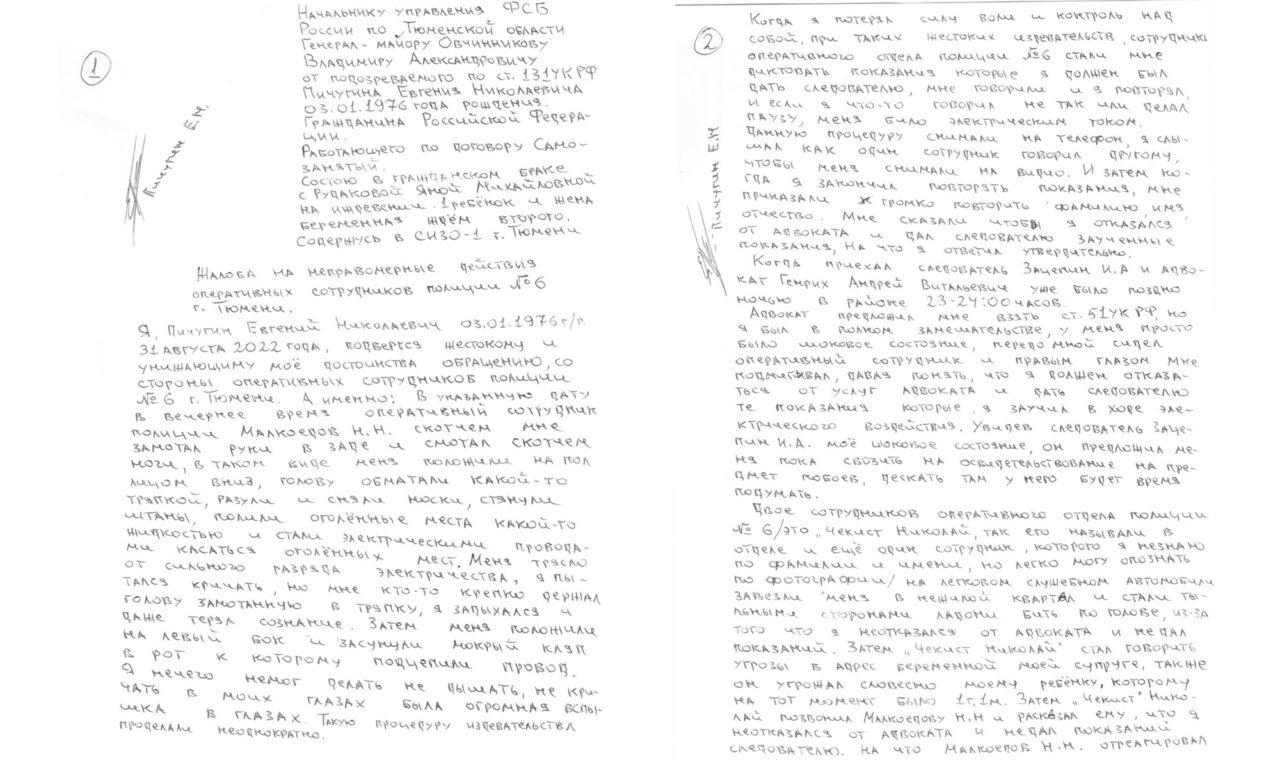 1
Начальнику управления ФСБ
России по Тюменской области
Генерал-майору Овчинникову
Владимиру Александровичу
от подозреваемого по ст. 131УК РФ
Пичугина Евгения Николаевича
03.01.1976 года рождения.
Гражданина Российской Федера-
ции.
Работающего по договору Само-
занятый.
Состою в гражданском браке
с Рудаковой Яной Михайловной
на иждевении 1 ребёнок и жена
беременная ждём второго.
Содержусь в СИЗО-1 г. Тюмени
Пичугин Е.Н.
Жалоба на неправомерные действия
оперативных сотрудников полиции №6
г. Тюмени.
Я, Пичугин Евгений Николаевич 03.01.1976 г/р.
31 августа 2022 года, подвергся жестокому и
унижающиму моё достоинства обращению, со
стороны оперативных сотрудников полиции
№6 г. Тюмени. А именно: В указанную дату
в вечернее время оперативный сотрудник
полиции Малкоедов Н.Н. скотчем мне
замотал руки в заде и смотал скотчем
ноги, в таком виде меня положили на пол
лицом вниз, голову обматали какой-то
тряпкой, разули и сняли носки, стянули
штаны, полили оголённые места какой-то
жидкостью и стали электрическими провода-
ми касаться оголённых мест. Меня трясло
от сильного разряда электричества, я пы-
тался кричать, но мне кто-то крепко держал
голову замотанную в тряпку, я задыхался и
даже терял сознание. Затем меня положили
на левый бок и засунули мокрый кляп
в рот к которому подцепили провод.
Я нечего немог делать не дышать, не кри-
чать в моих глазах была огромная вспы-
шка в глазах. Такую процедуру издевательств
проделали неоднократно.
2
Когда я потерял силу воли и контроль над
собой, при таких жестоких издевательств, сотрудники
оперативного отдела полиции №6 стали мне
диктовать показания которые я должен был
дать следователю, мне говорили и я повторял,
и если я что-то говорил не так или делал
паузу, меня било электрическим током.
Данную процедуру снимали на телефон, я слы-
шал как один сотрудник говорил другому,
чтобы меня снимали на видио. И затем ко-
гда я закончил повторять показания, мне
приказали громко повторить фамилию имя
отчество. Мне сказали чтобы я отказался
от адвоката и дал следователю заученные
показания, на что я ответил утвердительно.
Когда приехал следователь Зацепин И.А и адво-
кат Генрих Андрей Витальевич уже было поздно
ночью в районе 23-24:00 часов.
Адвокат предложил мне взять ст. 51УК РФ, но
я был в полном замешательстве, у меня просто
было шоковое состояние, передо мной сидел
оперативный сотрудник и правым глазом мне
подмигивал, давая понять, что я должен отказа-
ться от услуг адвоката и дать следователю
те показания которые, я заучил в ходе эле-
ктрического воздействия. Увидев следователь Заце-
пин И.А. моё шоковое состояние, он предложил ме-
ня пока свозить на освидетельствование на пре-
дмет побоев, дескать там у него будет время
подумать.
Двое сотрудников оперативного отдела полиции
№ 6 /это „Чекист Николай, так его называли в
отделе и ещё один сотрудник, которого я незнаю
по фамилии и имени, но легко могу опознать
по фотографии/ на легковом служебном автомобили
завезли меня в нежилой квартал и стали ты-
льными сторонами ладони бить по голове, из-за
того что я неотказался от адвоката и не дал
показаний. Затем „Чекист Николай" стал говорить
угрозы в адрес беременной моей супруге, также
он угрожал словесно моему ребёнку, которому
на тот момент было 1г.1м. Затем „Чекист" Нико-
лай позвонил Малкоедову Н.Н и рассказал ему, что я
неотказался от адвоката и недал показаний
следователю. На что Малкоедов Н.Н. отреагировал
Пичугин Е.Н